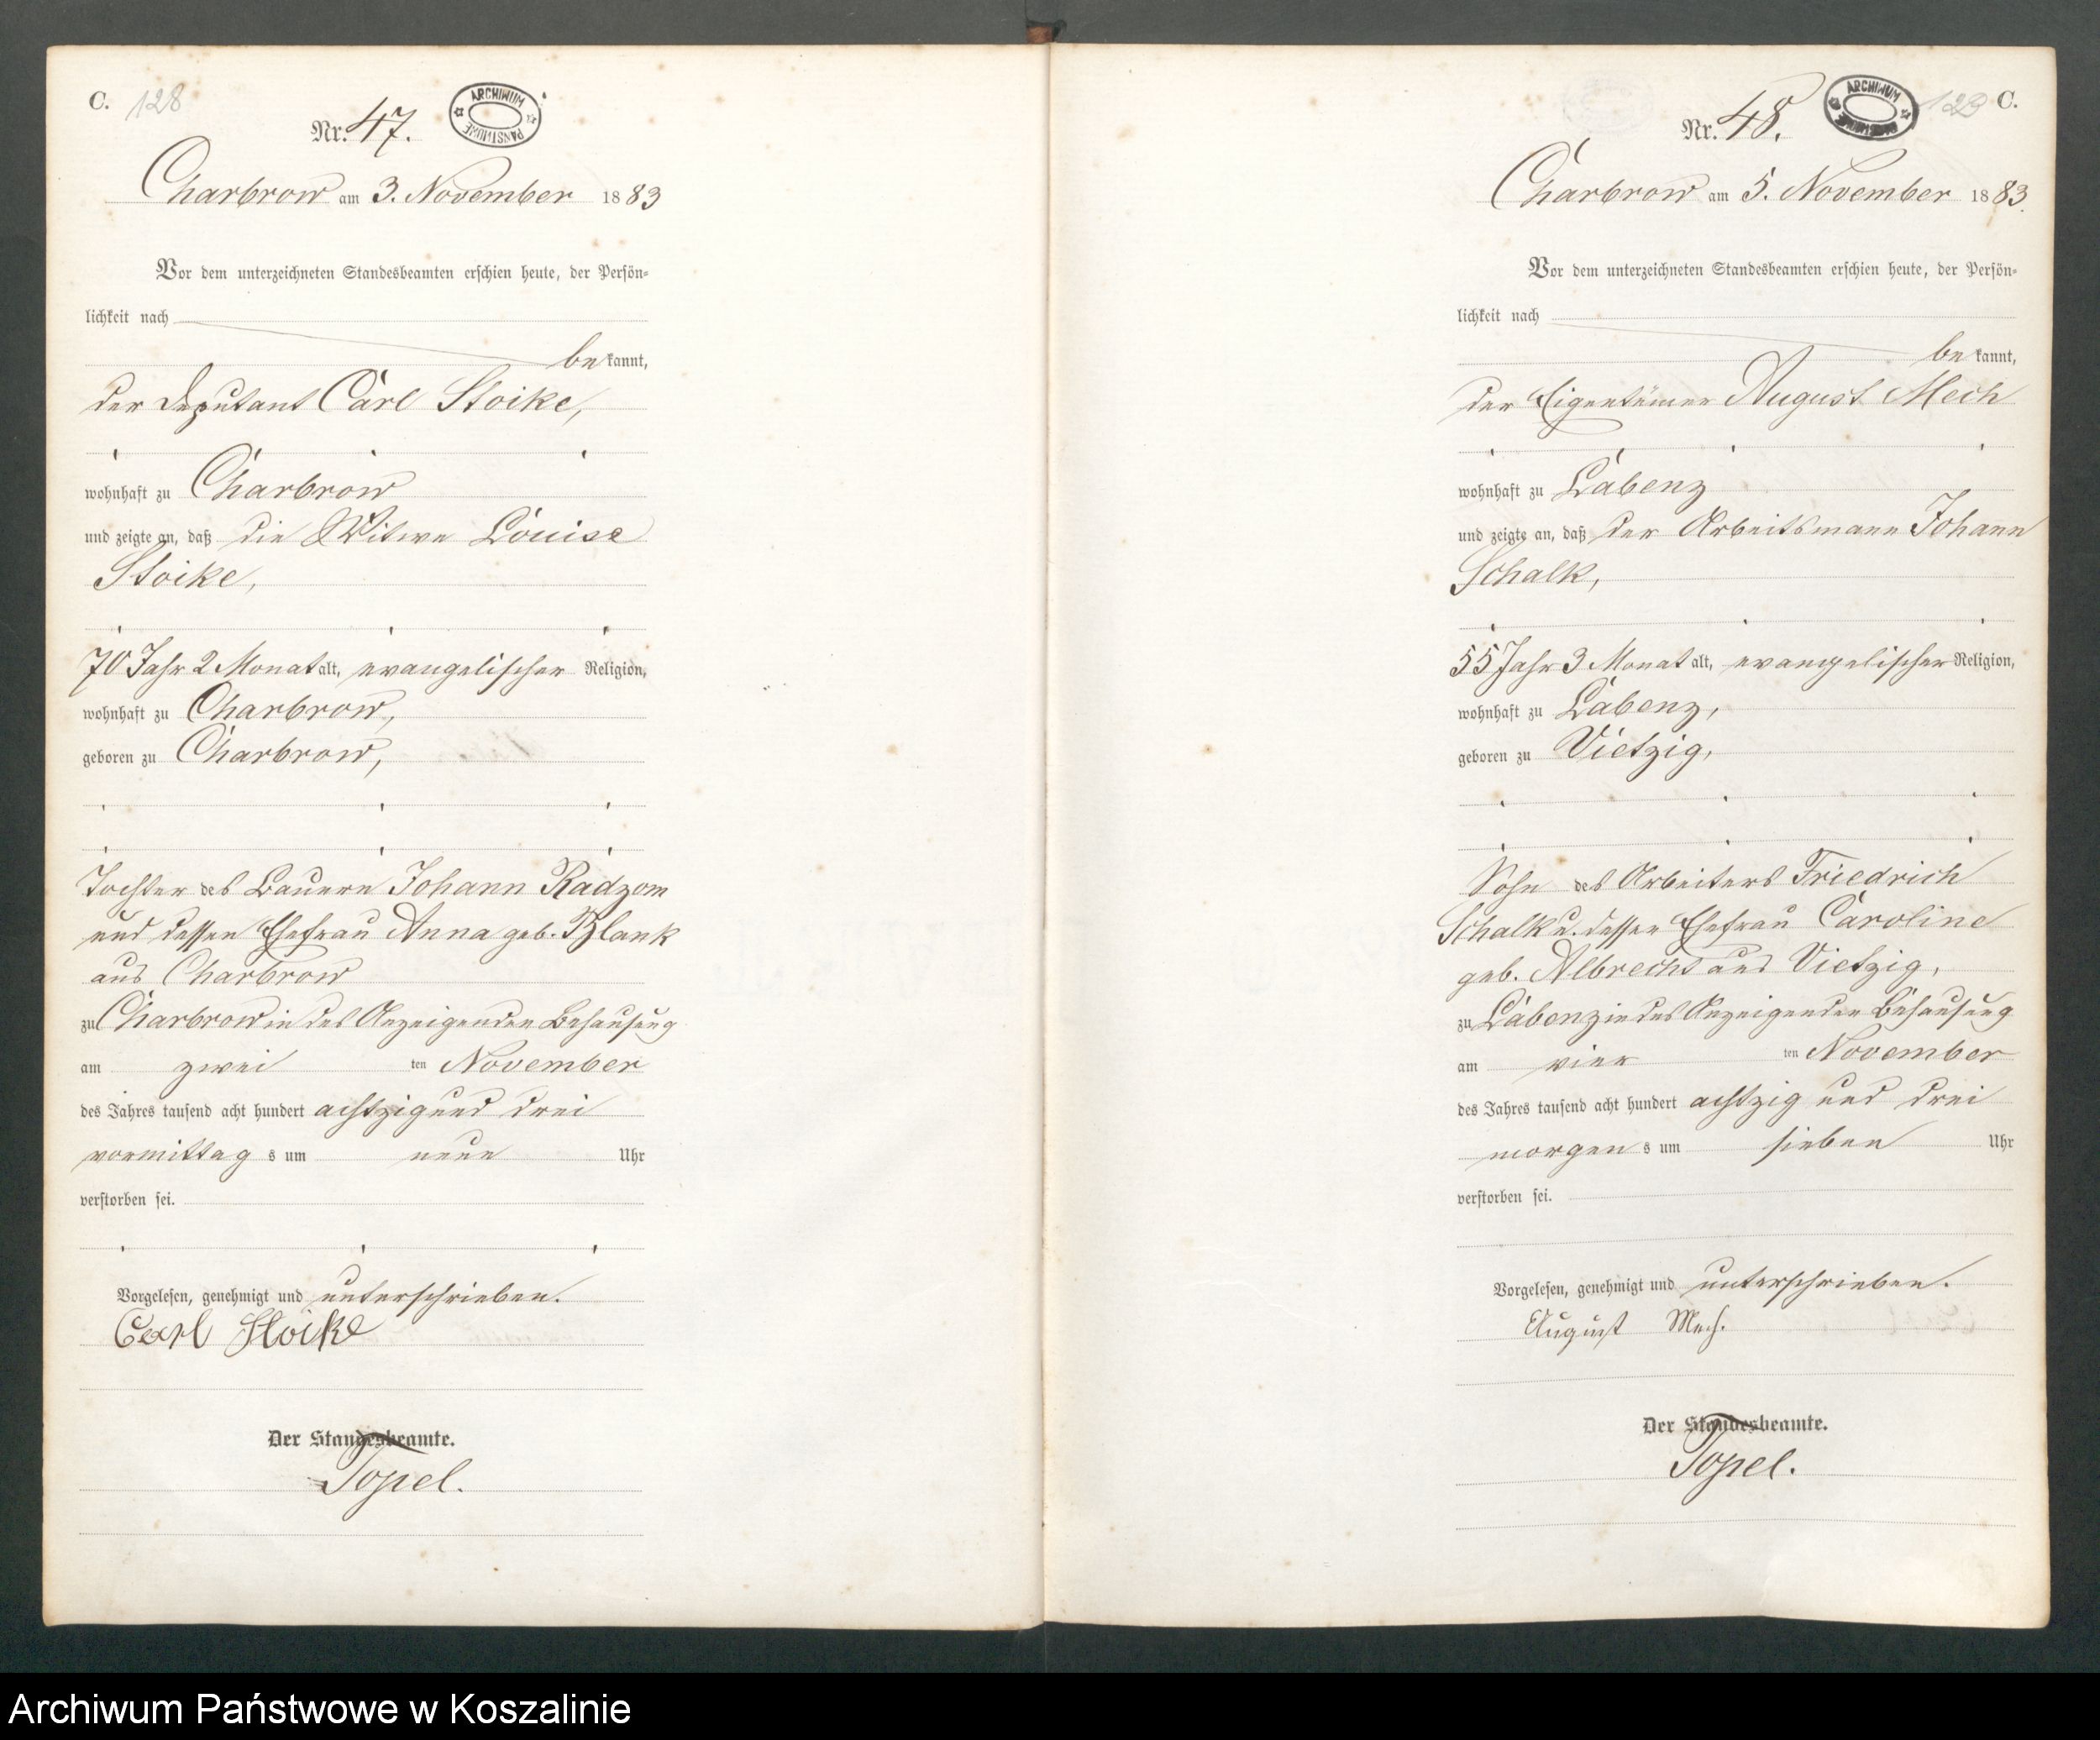 C. 128
Nr. 47.
ARCHIWUM PAŃSTWOWE
Charbrow am 3. November 1883
Vor dem unterzeichneten Standesbeamten erschien heute, der Persön-
lichkeit nach
bekannt,
der Deputant Carl Stoike,
wohnhaft zu Charbrow
und zeigte an, daß die Witwe Louise
Stoike,
70 Jahr 2 Monat alt, evangelischer Religion,
wohnhaft zu Charbrow,
geboren zu Charbrow,
Tochter des Bauern Johann Radzom
und dessen Ehefrau Anna geb. Blank
aus Charbrow
zu Charbrow in des Anzeigenden Behausung
am zwei ten November
des Jahres tausend acht hundert achtzig und drei
vormittags um neun Uhr
verstorben sei.
Vorgelesen, genehmigt und unterschrieben.
Carl Stoike
Der Standesbeamte.
Topel.
C.
Nr. 48.
ARCHIWUM PAŃSTWOWE
Charbrow am 5. November 1883.
Vor dem unterzeichneten Standesbeamten erschien heute, der Persön-
lichkeit nach
bekannt,
der Eigentümer August Mech
wohnhaft zu Labenz
und zeigte an, daß der Arbeitsmann Johann
Schalk,
55 Jahr 3 Monat alt, evangelischer Religion,
wohnhaft zu Labenz,
geboren zu Vietzig,
Sohn des Arbeiters Friedrich
Schalk u. dessen Ehefrau Caroline
geb. Albrecht aus Vietzig,
zu Labenz in des Anzeigenden Behausung
am vier ten November
des Jahres tausend acht hundert achtzig und drei
morgens um sieben Uhr
verstorben sei.
Vorgelesen, genehmigt und unterschrieben.
August Mech.
Der Standesbeamte.
Topel.
Archiwum Państwowe w Koszalinie